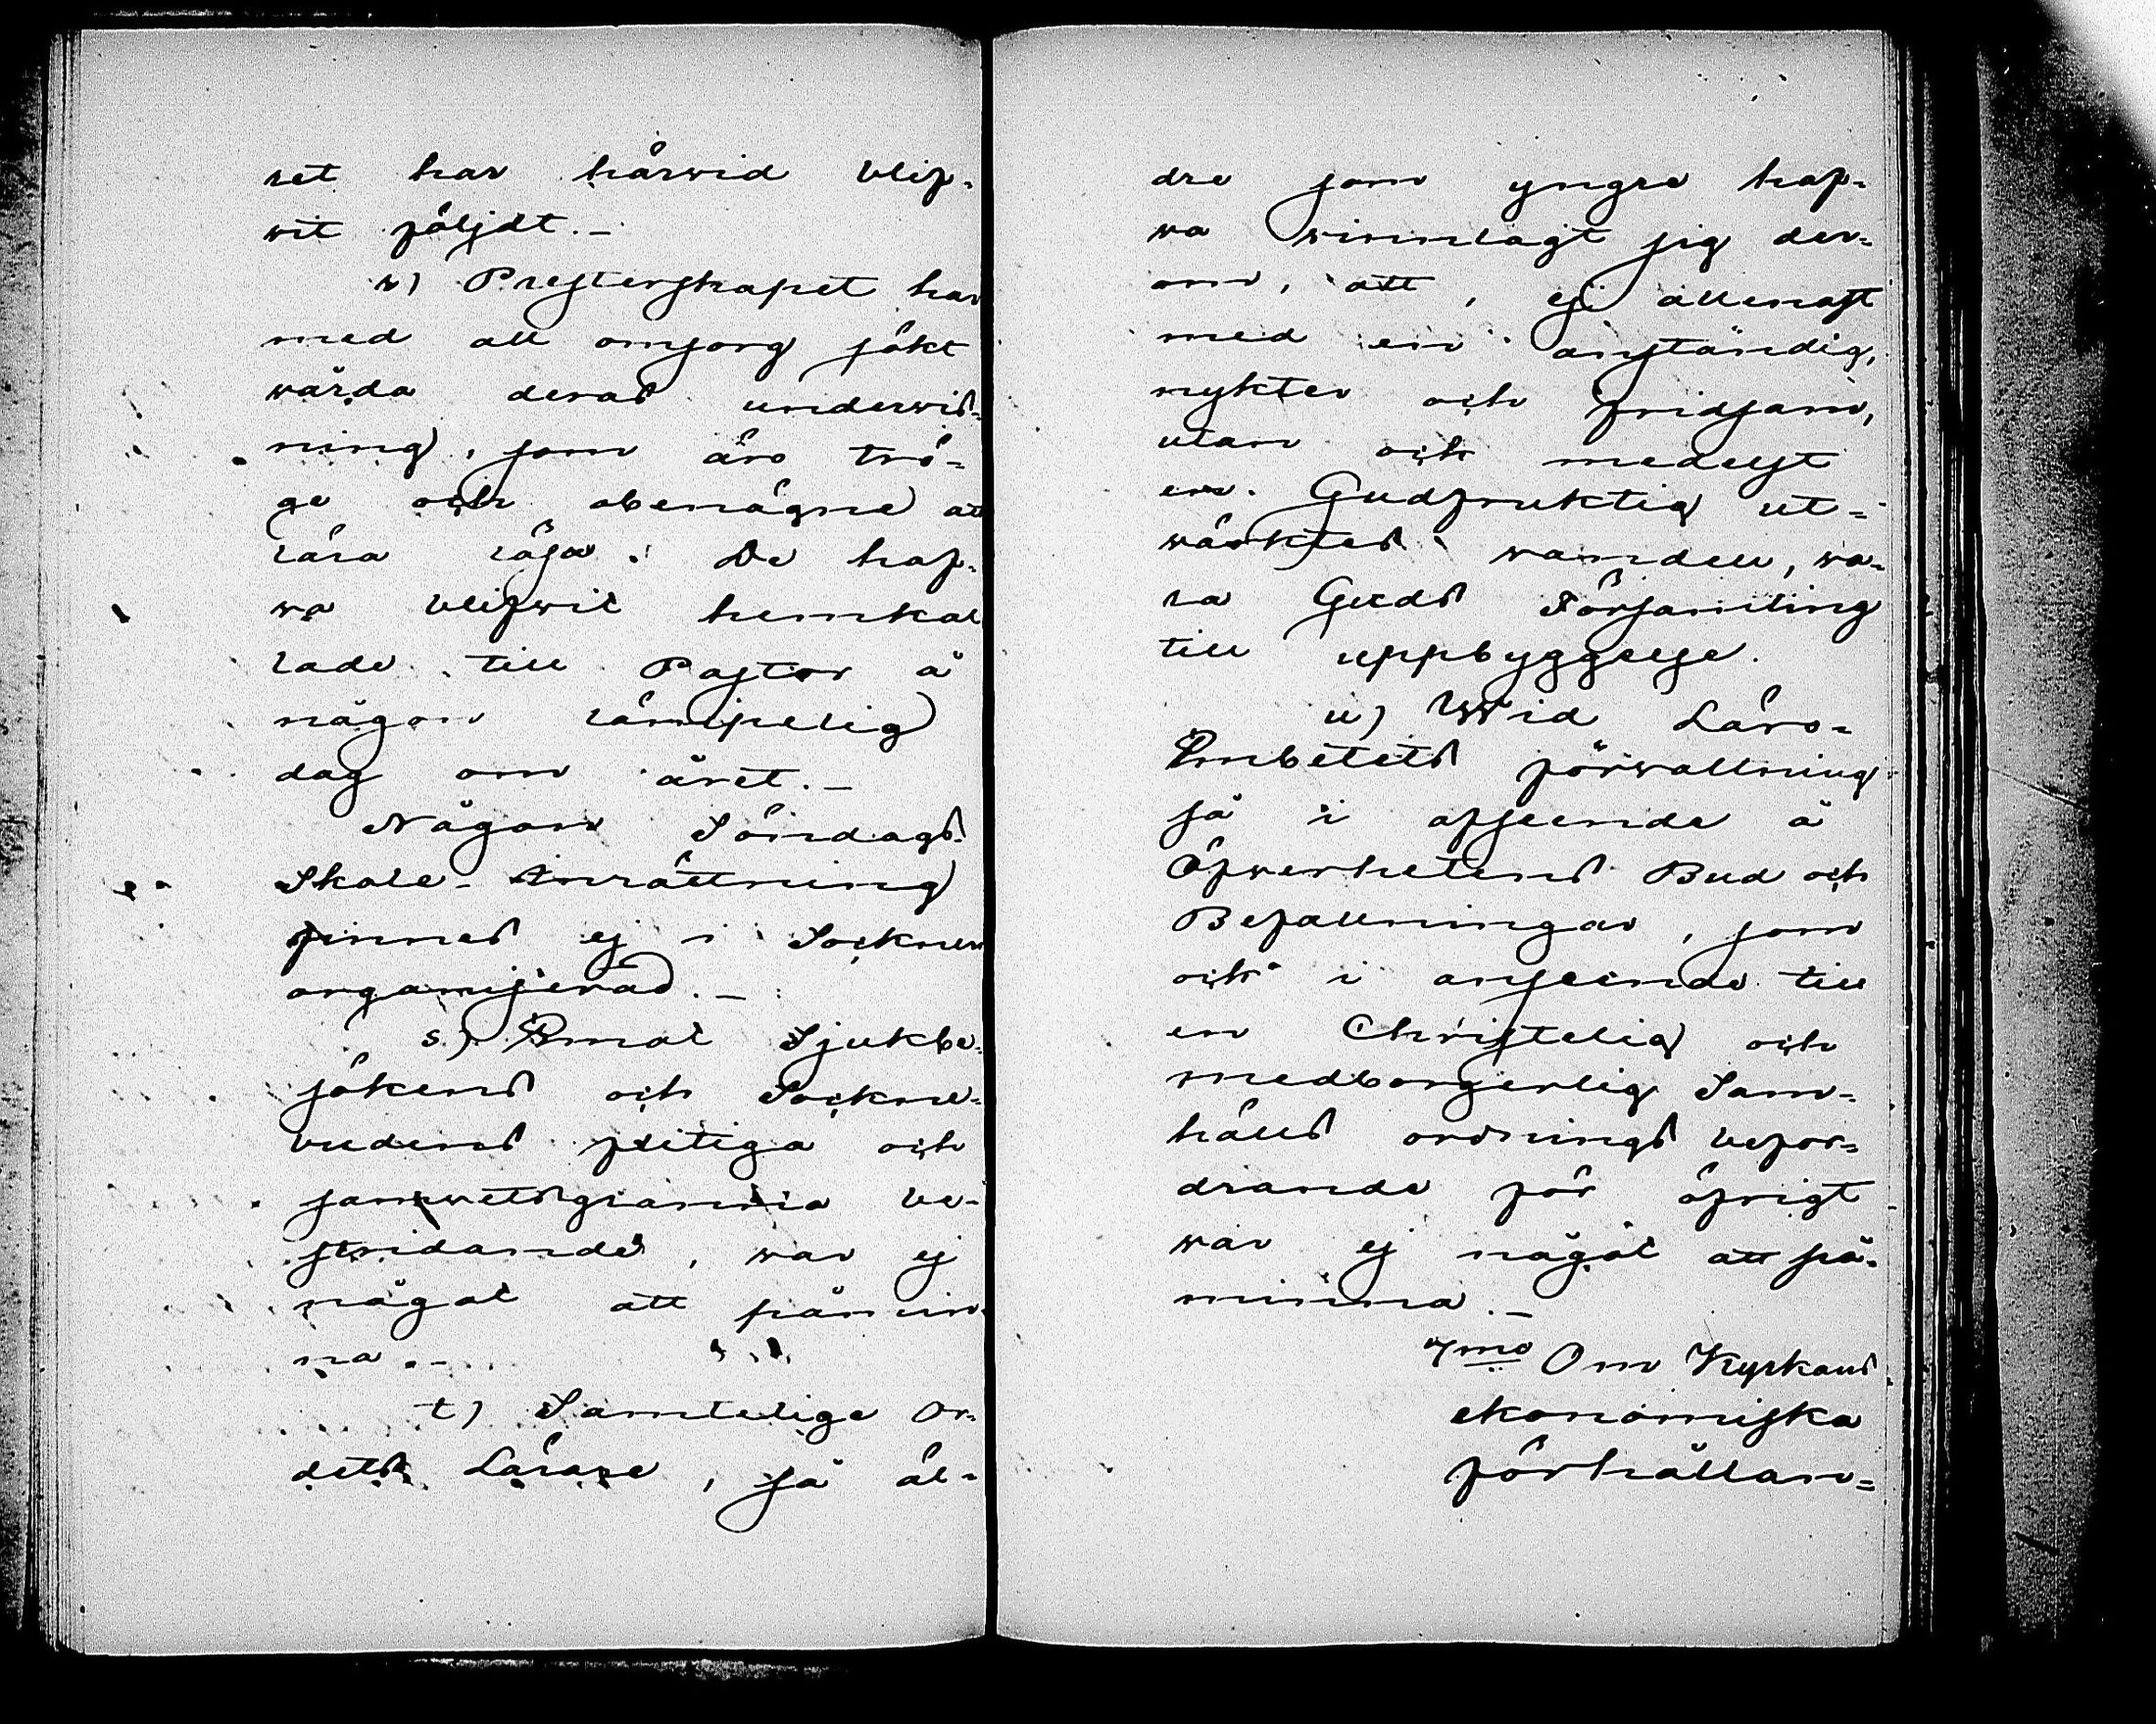 ret har härvid blif-
vit följdt.-
r) Presterskapet har
med all omsorg sökt
vårda deras undervis-
ning, som äro trö-
ge och obenägne att
lära läsa. De haf-
va blifvit hemkal
lade till Pastor å
någon lämpelig
dag om året.-
Någon Söndags-
Skole-Inrättning
finnes ej i Socknen
organiserad.-
s.) Emot Sjukbe-
sökens och Sockne-
budens flitiga och
samvetsgranna be-
stridande, var ej
något att påmin
na.-
t) Samtelige Or-
dets Lärare, så äl-
dre som yngre haf-
va vinnlagt sig der-
om, att, ej allenast
med en anständig,
nykter och fridsam,
utan ock medelst
en Gudfruktig ut-
värktes vandell, va-
ra Guds Församling
till uppbyggelse.
u) Wid Läro-
Embetets förvaltning
så i afseende å
Öfverhetens Bud och
Befallningar, som
ock i anseende till
en Christelig och
medborgerlig Sam-
hälls ordnings befor-
drande för öfrigt
var ej något att på-
minna.-
7mo Om Kyrkans
ekonomiska
förhållan-